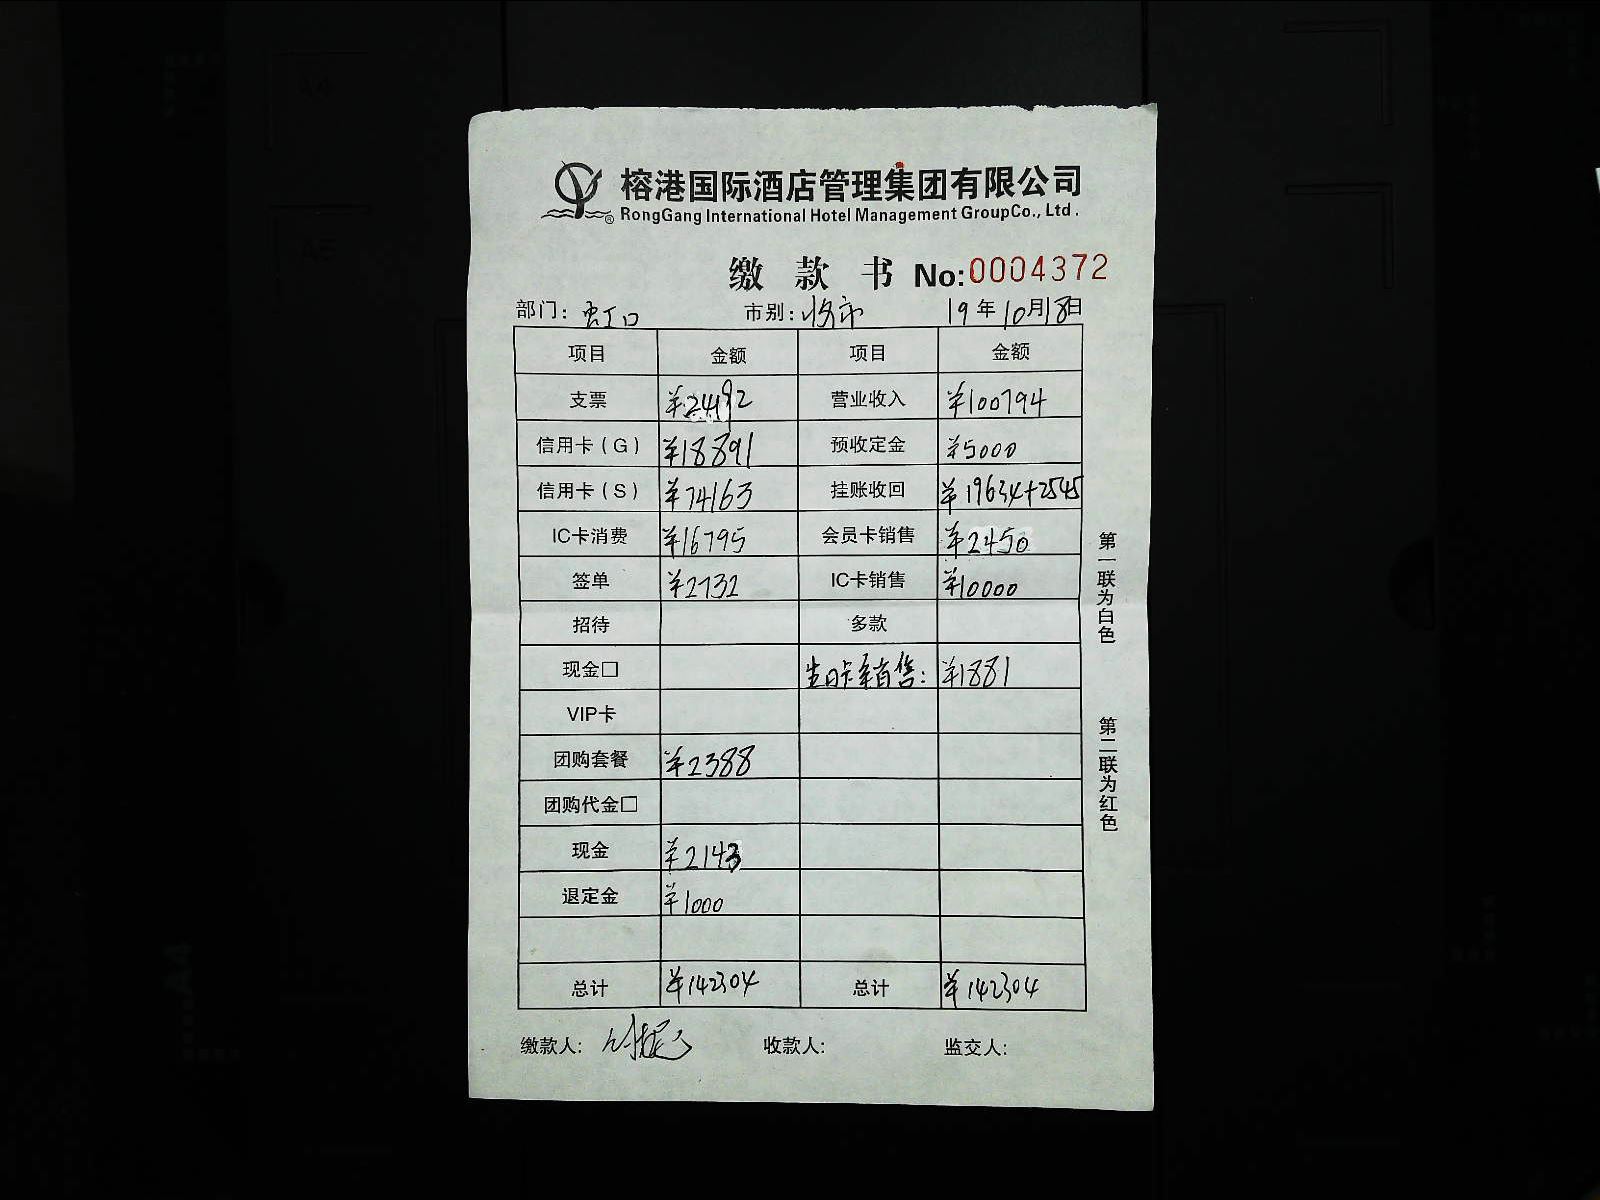 榕港国际酒店管理集团有限公司
RongGang International Hotel Management GroupCo., Ltd.
缴款书 No:0004372
部门: 虹口 市别: 19年10月18日
项目 金额 项目 金额
支票 ¥24192 营业收入 ¥100794
信用卡(G) ¥18891 预收定金 ¥5000
信用卡(S) ¥74163 挂账收回 ¥19634+2545
IC卡消费 ¥16795 会员卡销售 ¥2450
签单 ¥2732 IC卡销售 ¥10000
招待 多款
现金□ 生日卡销售: ¥1881
VIP卡
团购套餐 ¥2388
团购代金□
现金 ¥2143
退定金 ¥1000
总计 ¥142304 总计 ¥142304
缴款人: 收款人: 监交人:
第一联为白色
第二联为红色